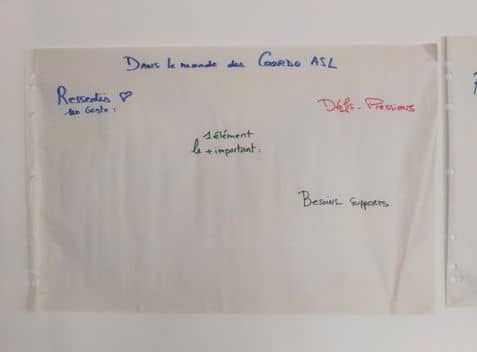 Dans le monde des Coordo ASL
Ressentis ♡
un Geste :
Défis - Pressions
1 élément
le + important :
Besoins supports